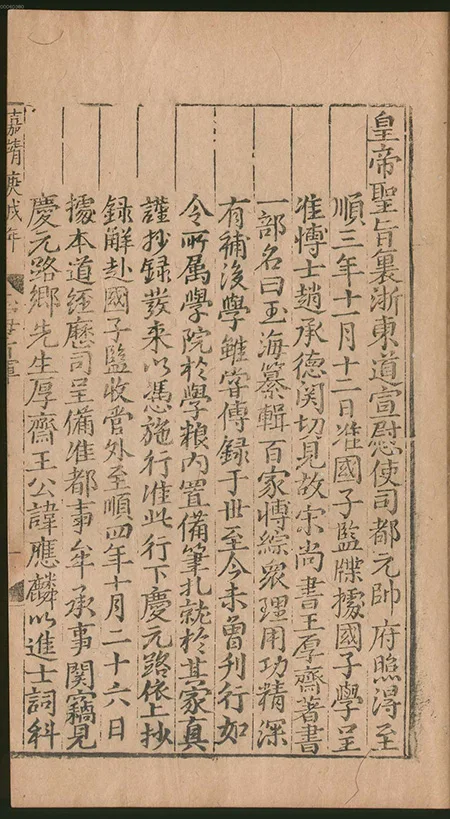 皇帝聖旨裏浙東道宣慰使司都元帥府照得至
順三年十一月十二日准國子監牒據國子學呈
准博士趙承德関切見故宋尚書王厚齋著書
一部名曰玉海纂輯百家博綜衆理用功精深
有補後學雖嘗傳録于世至今未曾刊行如
令所属學院於學粮内置備筆札就於其家真
謹抄録發来以憑施行准此行下慶元路依上抄
録解赴國子監收管外至順四年十月二十六日
據本道經歷司呈備准都事牟承事関竊見
慶元路鄉先生厚齋王公諱應麟以進士詞科
嘉靖庚戌年